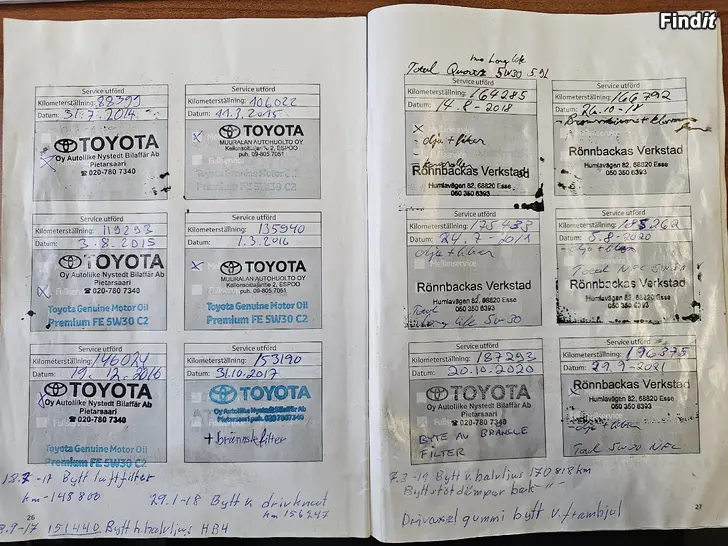 Findit
Service utförd
Kilometerställning: 88399
Datum: 31.7.2014
TOYOTA
Oy Autolike Nystedt Bilaffär Ab
Pietarsaari
☎ 020-780 7340
Service utförd
Kilometerställning: 106022
Datum: 11.3.2015
x
TOYOTA
MUURALAN AUTOHUOLTO OY
ESPOO
puh. 09-805 7051
Toyota Genuine Motor Oil
Premium FE 5W30 C2
Service utförd
Kilometerställning: 119293
Datum: 3.8.2015
TOYOTA
Oy Autolike Nystedt Bilaffär Ab
Pietarsaari
☎ 020-780 7340
x
Toyota Genuine Motor Oil
Premium FE 5W30 C2
Service utförd
Kilometerställning: 135940
Datum: 1.3.2016
x
TOYOTA
MUURALAN AUTOHUOLTO OY
ESPOO
puh. 09-805 7051
Toyota Genuine Motor Oil
Premium FE 5W30 C2
Service utförd
Kilometerställning: 146024
Datum: 19.12.2016
TOYOTA
Oy Autolike Nystedt Bilaffär Ab
Pietarsaari
☎ 020-780 7340
Toyota Genuine Motor Oil
Premium FE 5W30 C2
Service utförd
Kilometerställning: 153190
Datum: 31.10.2017
TOYOTA
Oy Autolike Nystedt Bilaffär Ab
Pietarsaari
+ bränslefilter
-17 Bytt luftfilter
km -148 800
29.1-18 Bytt v. drivknut
km 156247
26
-17 151440 Bytt h. halvljus HB4
Long life
Total Quartz 5W30
Service utförd
Kilometerställning: 164285
Datum: 14.8-2018
x
- olja + filter
Rönnbackas Verkstad
Humlavägen 82, 68820 Esse
050 350 6393
Service utförd
Kilometerställning: 166792
Datum: 26.10-18
Rönnbackas Verkstad
Humlavägen 82, 68820 Esse
050 350 6393
Service utförd
Kilometerställning: 175433
Datum: 24.7-
olja + filter
Rönnbackas Verkstad
Humlavägen 82, 68820 Esse
050 350 6393
Long life 5W30
Service utförd
Kilometerställning: 185262
Datum: 5.8-2020
olja + filter
Total NFC 5W30
Rönnbackas Verkstad
Humlavägen 82, 68820 Esse
050 350 6393
Service utförd
Kilometerställning: 187293
Datum: 20.10.2020
TOYOTA
Oy Autolike Nystedt Bilaffär Ab
Pietarsaari
☎ 020-780 7340
BYTE AV BRÄNSLE
FILTER
Service utförd
Kilometerställning: 196375
Datum: 29.9-2021
Rönnbackas Verkstad
Humlavägen 82, 68820 Esse
050 350 6393
olja + filter
Total 5W30 NFC
7.3-19 Bytt v. halvljus 170818 km
Bytt stötdämpar bak -"-
Drivaxel gummi bytt v. frambjul
27